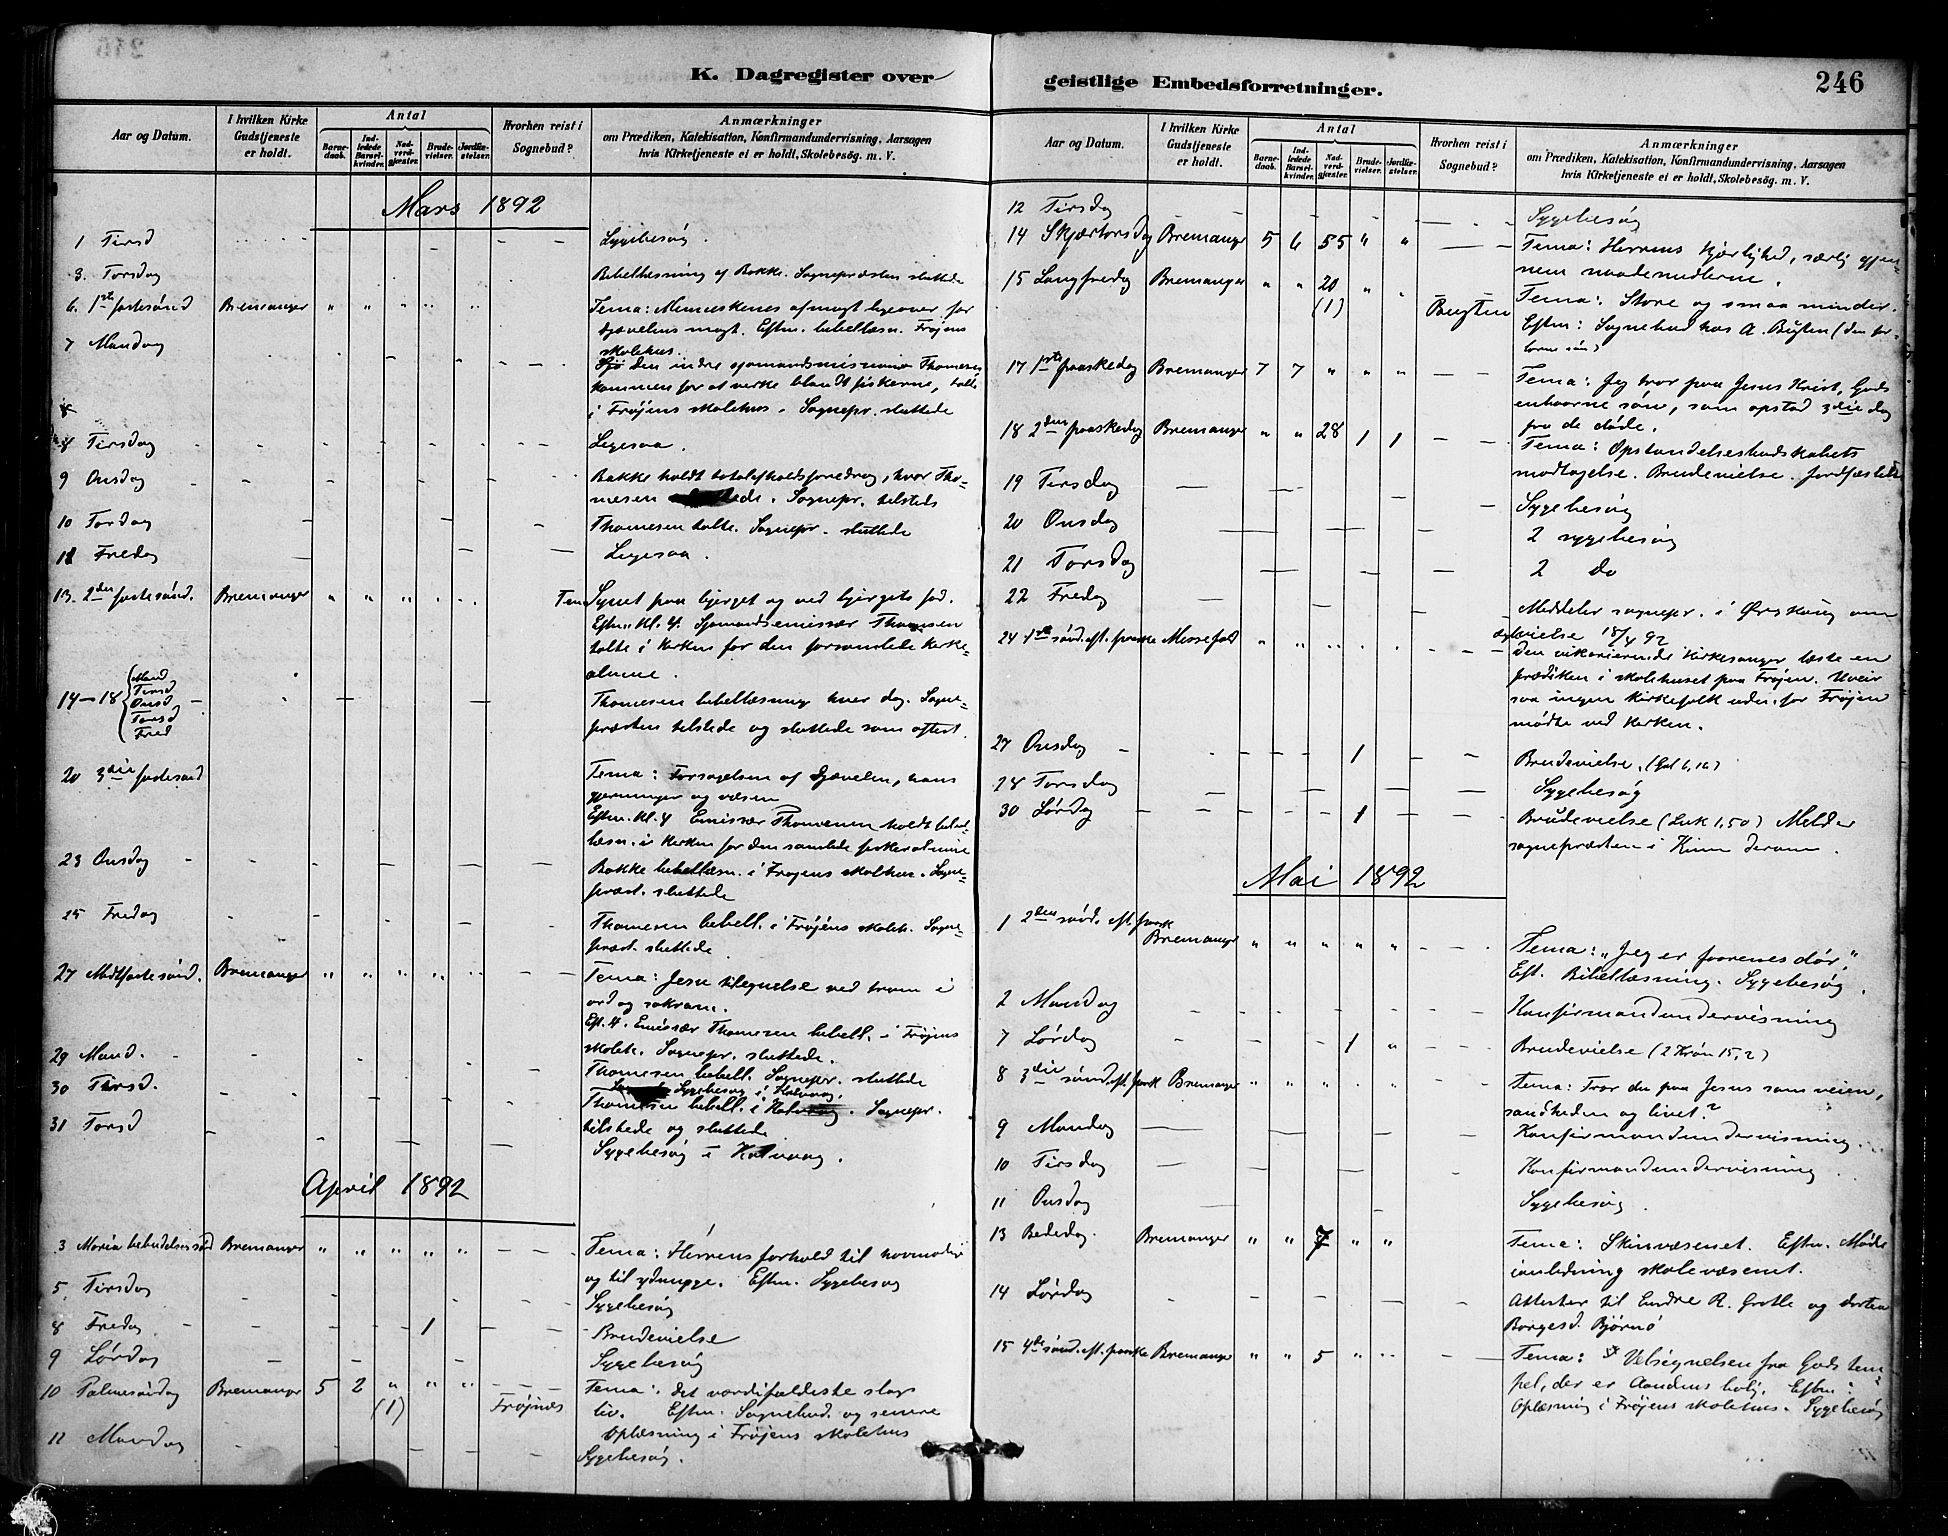 K. Dagregister over
Aar og Datum.
I hvilken Kirke Gudstjeneste er holdt.
Antal
Barnedaab.
Indledede Barselkvinder.
Nadverdgjæster.
Brudevielser.
Jordfæstelser.
Hvorhen reist i Sognebud?
Anmærkninger
om Prædiken, Katekisation, Konfirmandundervisning, Aarsagen
hvis Kirketjeneste ei er holdt, Skolebesög. m. V.
Mars 1892
1 Tirsd Sygebesøg.
3. Torsdag Bibellæsning af Bakke. Sognepræsten sluttede
6. 1ste fastesönd Bremanger " " " " " Tema: Menneskenes afmagt ligeover for
djævelens magt. Eftm. bibellæsn. Frøjens
skolehus.
7 Mandag den indre sjømandsmission Thomesen
kommen for at virke blandt fiskerne, talte
i Frøjens skolehus. Sognepr. sluttede
8 Tirsdag Ligesaa.
9 Onsdag Bakke holdt totalafholdsforedrag, hvor Tho-
mesen . Sognepr. tilstede
10 Torsdag Thomesen talte. Sognepr. sluttede
11 Fredag Ligesaa.
13. 2den fastesönd. Bremanger " " " " " Tema Synet paa bjerget og ved bjergets fod.
Eftm. Kl. 4. Sjømandsemissær Thomesen
talte i kirken for den forsamlede fiske-
almue.
14-18 Mand Tirsd Onsd Torsd Fred Thomesen bibellæsning hver dag. Sogne-
præsten tilstede og sluttede som oftest.
20 3die fastesönd Tema: Forsagelsen af djævelen, hans
gjerninger og væsen
Eftm. Kl. 4 Emissær Thomesen holdt bibel-
læsn. i kirken for den samlede fiskeralmue
23 Onsdag Bakke bibellæsn. i Frøjens skolehus. Sogne-
præst. sluttede
25 Fredag Thomesen bibell. i Frøjens skoleh. Sogne-
præst. sluttede
27 Midtfastesönd. Bremanger " " " " " Tema: Jesu tilegnelse ved troen i
ord og sakram.
Eft. 4. Emissær Thomesen bibell. i Frøjens
skoleh. Sognepr. sluttede.
29 Mand. Thomesen bibell. Sognepr. sluttede
30 Tirsd. Sygebesøg i Kalvaag.
Thomesen bibell. i Kalvaag. Sognepr.
tilstede og sluttede
31 Torsd Sygebesøg i Kalvaag.
April 1892
3 Mariæ bebudelsessönd Bremanger " " " " " Tema: Herrens forhold til hovmodige
og til ydmyge. Eftm. Sygebesøg
5. Tirsdag Sygebesøg
8 Fredag 1 Brudevielse
9 Lördag Sygebesøg
10 Palmesöndag Bremanger 5 2 " " " Tema: det værdifuldeste slags
(1) Frøjnæs liv. Eftm. Sognebud. og senere
Oplæsning i Frøjens skolehus
11 Mandag Sygebesøg.
geistlige Embedsforretninger. 246
Aar og Datum.
I hvilken Kirke Gudstjeneste er holdt.
Antal
Barnedaab.
Indledede Barselkvinder.
Nadverdgjæster.
Brudevielser.
Jordfæstelser.
Hvorhen reist i Sognebud?
Anmærkninger
om Prædiken, Katekisation, Konfirmandundervisning, Aarsagen
hvis Kirketjeneste ei er holdt, Skolebesög. m. V.
12 Tirsdag Sygebesøg
14 Skjærtorsdag Bremanger 5 6 55 " " Tema: Herrens kjærlighed, særlig gjen-
nem naademidlerne.
15 Langfredag Bremanger " " 20 " " Tema: Store og smaa minder.
(1) Bugten Eftm: Sognebud hos A. Bugten (den for-
lorne sön)
17 1ste paaskedag Bremanger 7 7 " " " Tema: Jeg tror paa Jesus Krist, Guds
enbaarne sön, som opstod 3die dag
fra de døde.
18 2den paaskedag Bremanger " " 28 1 1 Tema: Opstandelsesbudskabets
modtagelse. Brudevielse. Jordfæstelse
19 Tirsdag Sygebesøg
20 Onsdag 2 sygebesøg
21 Torsdag 2 do
22 Fredag Meddeler sognepr. i Ørskoug om
vielse 18/4 92
24 1ste sönd. eft. paaske Messefald " " " " " den vikarierende kirkesanger læste en
prædiken i skolehuset paa Frøjen. Uveir
saa ingen kirkefolk udenfor Frøjen
mødte ved kirken.
27 Onsdag 1 Brudevielse. (Gal 6,10)
28 Torsdag Sygebesøg
30 Lördag 1 Brudevielse (Luk 1,50) Melder
sognepræsten i Kinn derom.
Mai 1892
1 2den sönd. eft. paask Bremanger " " " " " Tema: "Jeg er faarenes dør."
Eft. Bibellæsning. Sygebesøg.
2 Mandag Konfirmandundervisning
7 Lørdag 1 " Brudevielse (2 Krøn 15,2)
8 3die sönd. eft. paask Bremanger " " " " " Tema: Tror du paa Jesus som veien,
sandheden og livet?
9 Mandag Konfirmandundervisning.
10 Tirsdag Konfirmandundervisning.
11 Onsdag Sygebesøg.
13 Bededag. Bremanger " " 7 " " Tema: Skinvæsenet. Eftm. Møde
i anledning skolevæsenet.
14 Lördag Attester til Endre R. Grotle og dorten
Borgesd. Bjørnö
15 4de sönd. eft. paaske Bremanger " " 5 " " Tema: Velsignelsen fra Guds tem-
pel, der er Aandens bolig. Eftm:
Oplæsning i Frøjens skolehus. Sygebesøg